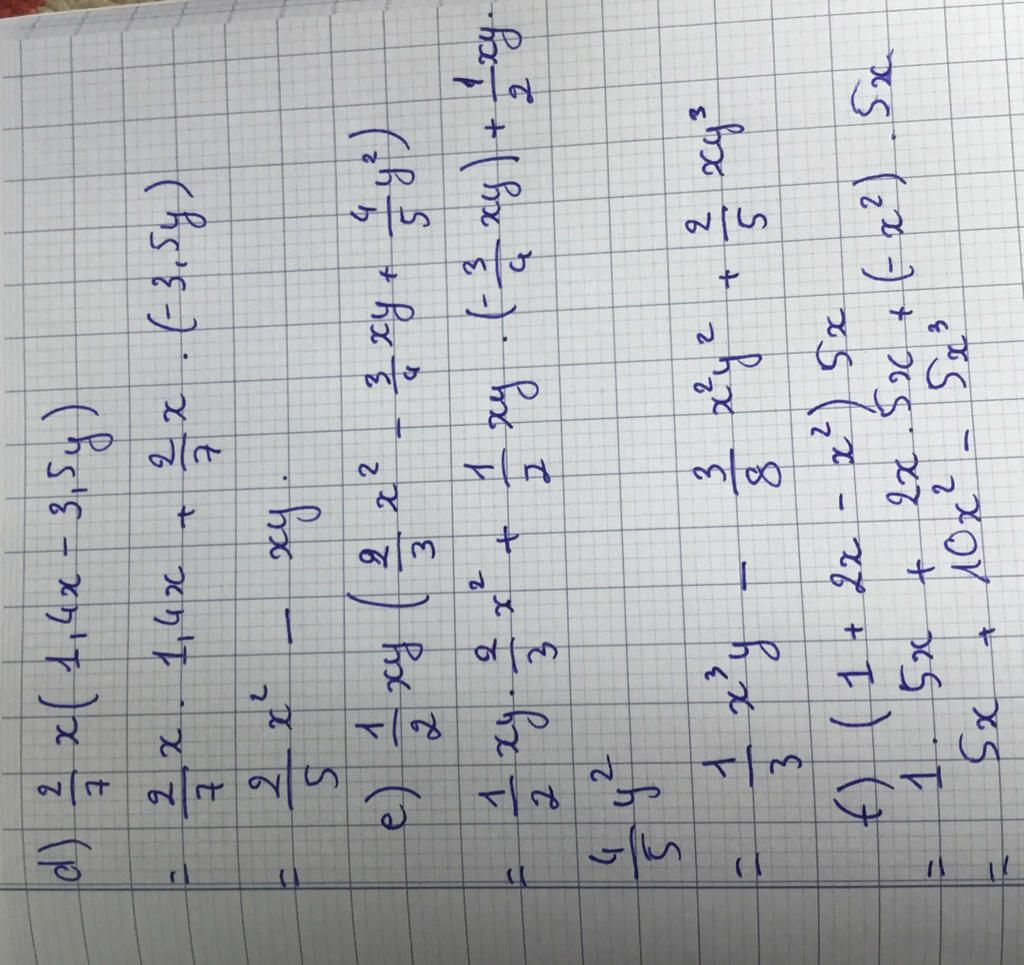 d) 2/7 x(1,4x - 3,5y)
= 2/7 x . 1,4x + 2/7 x . (-3,5y)
= 2/5 x² - xy.
e) 1/2 xy (2/3 x² - 3/4 xy + 4/5 y²)
= 1/2 xy . 2/3 x² + 1/2 xy . (-3/4 xy) + 1/2 xy.
4/5 y²
= 1/3 x³y - 3/8 x²y² + 2/5 xy³
f) (1 + 2x - x²) 5x
= 1. 5x + 2x . 5x + (-x²) . 5x
= 5x + 10x² - 5x³